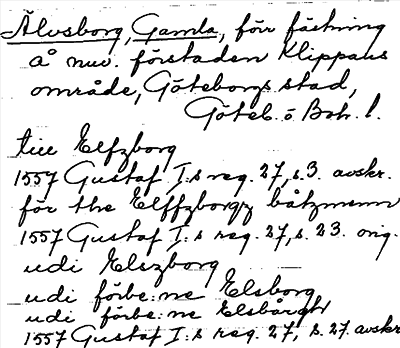 Älvsborg, Gamla, förr fästning
å nuv. förstaden Klippans
område, Göteborgs stad,
Göteb. o Boh. l.
till Elfzborg
1557 Gustaf I:s reg. 27, s. 3. avskr.
för the Elffzborgz båtzmenn
1557 Gustaf I:s reg. 27, s. 23. orig.
udi Elszborg
udi förbe:ne Elsborg
udi förbe:ne Elsbårgh
1557 Gustaf I:s reg. 27, s. 27. avskr.